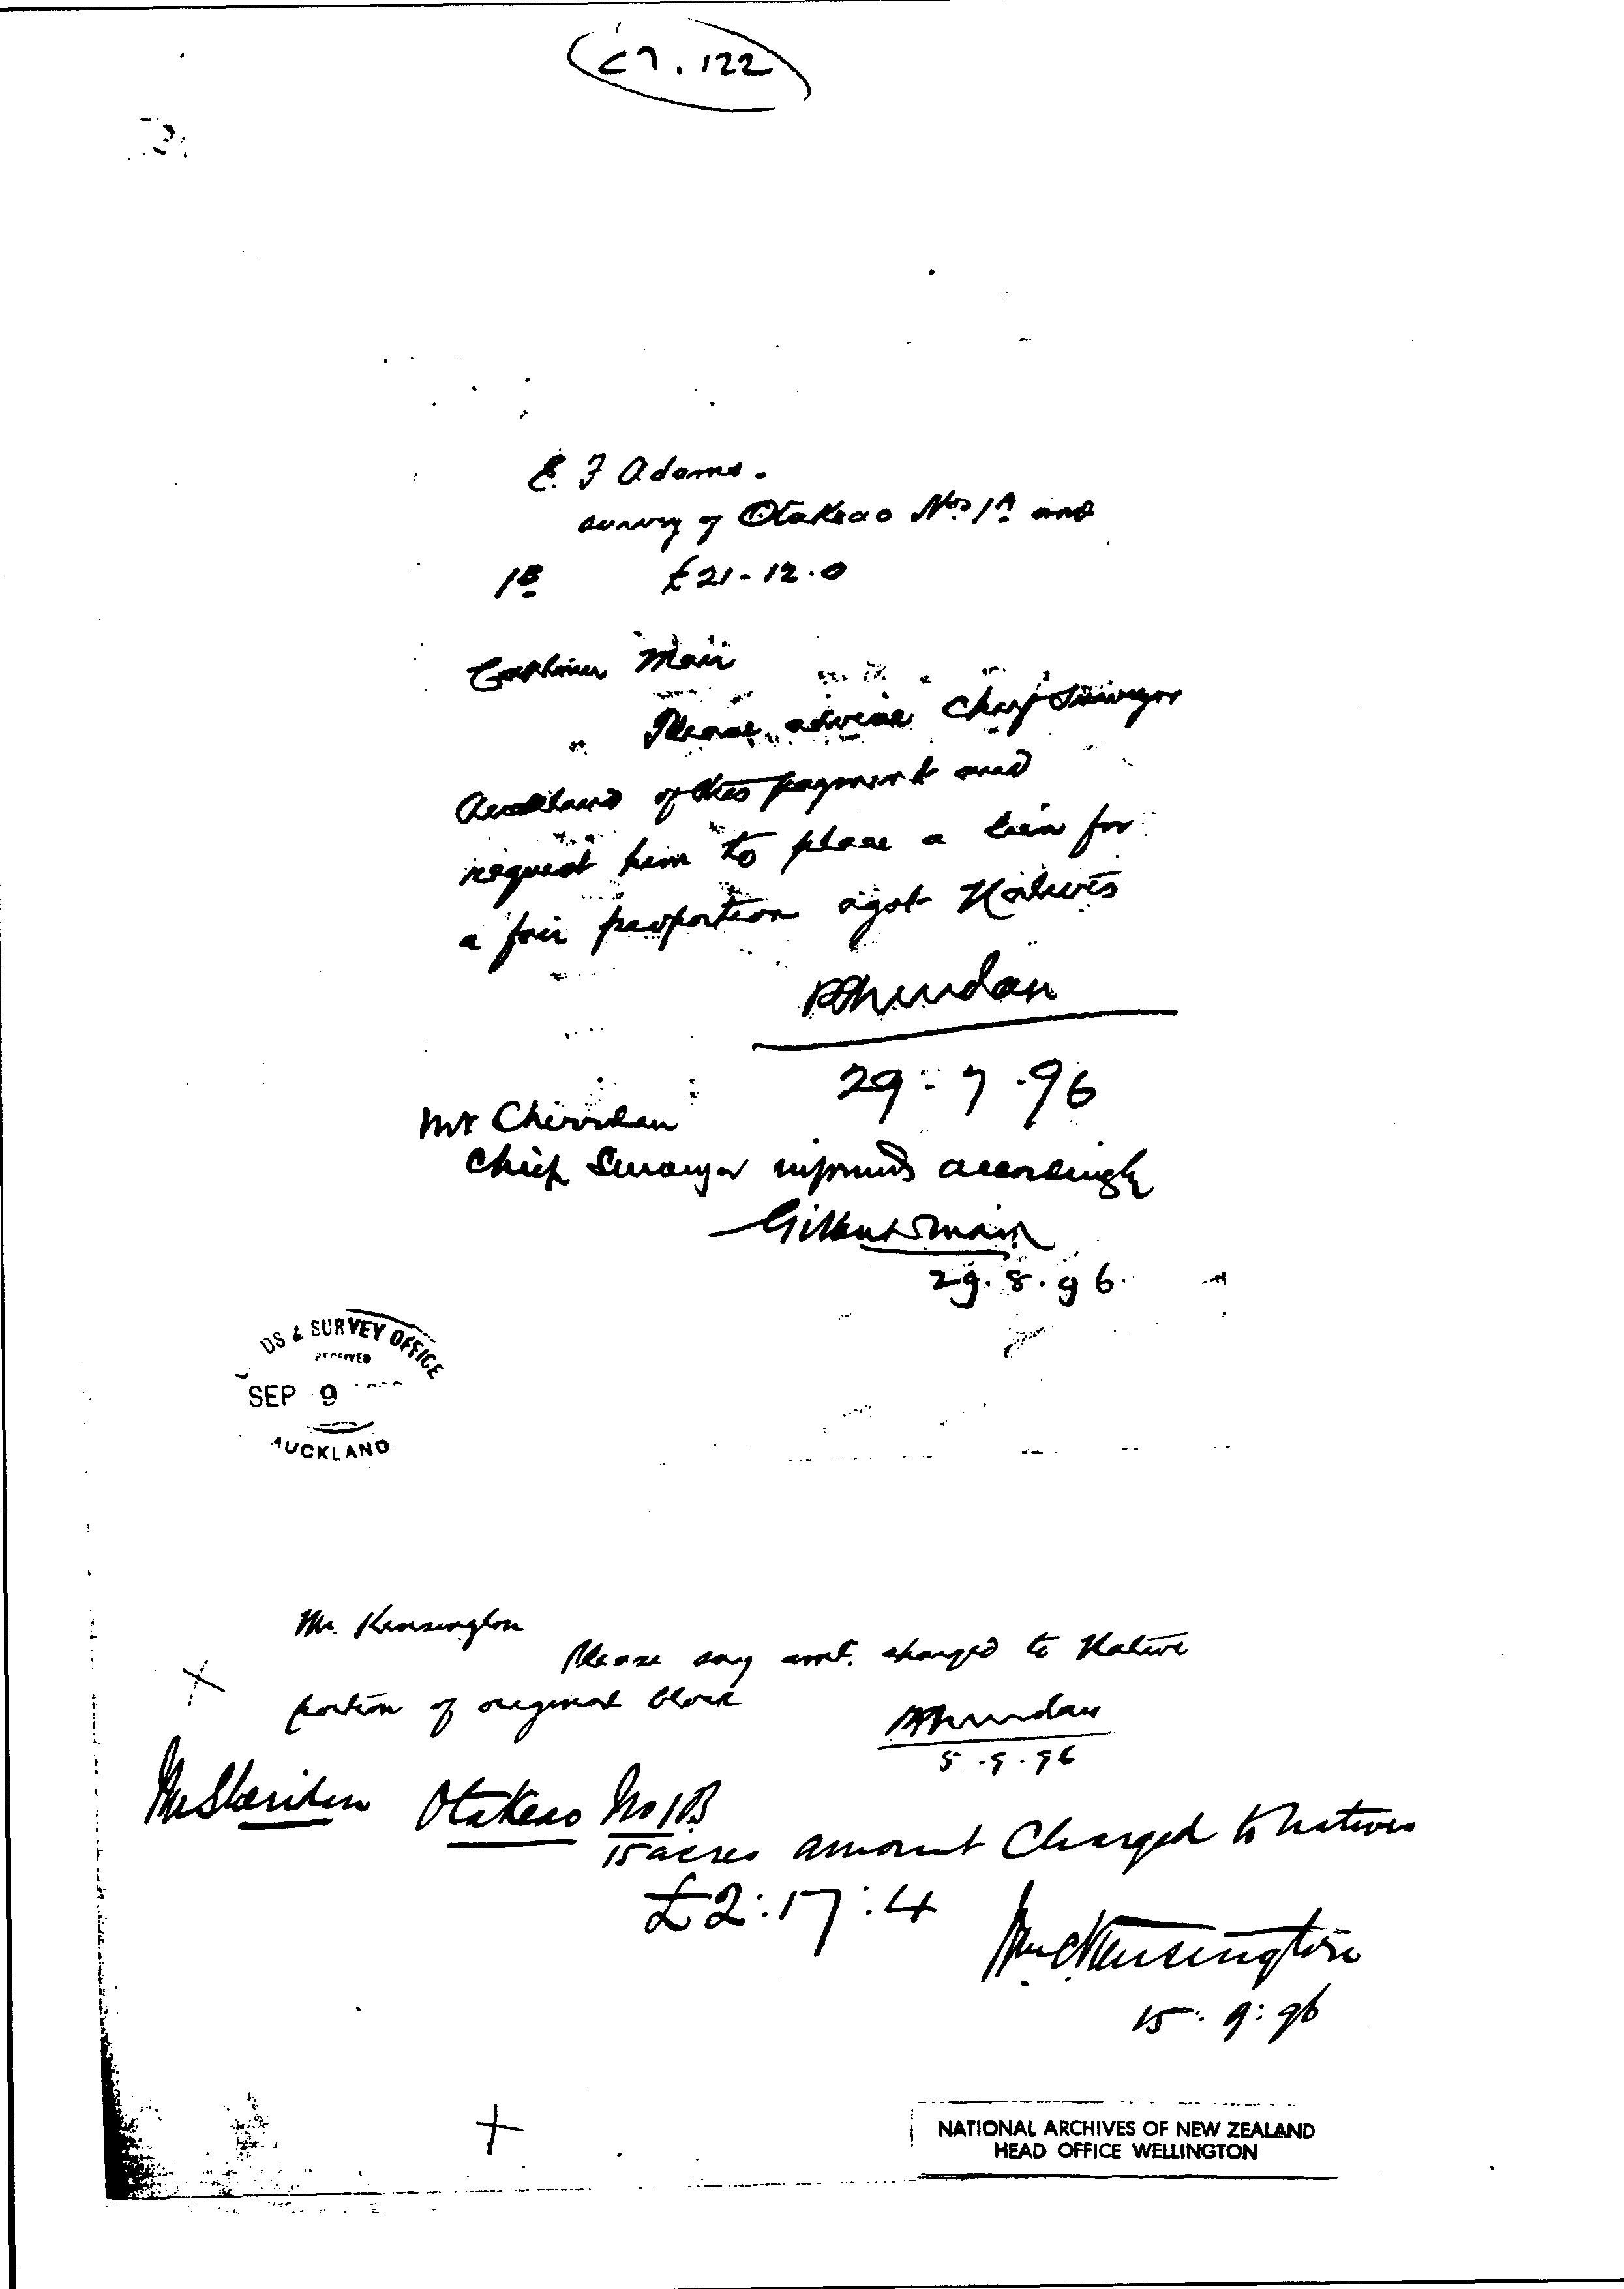 C7.122
E. F Adams.
survey of Otakeao Nos 1A and
1B £21-12.0
Captain Mair
Please advise Chief Surveyor
Auckland of this payment and
request him to place a lien for
a fair proportion agst Natives
P Sheridan
29-7-96
Mr Cherridan
Chief Surveyor informed accordingly
Gilbert Mair
29.8.96.
DS & SURVEY OFFICE
RECEIVED
SEP 9
AUCKLAND
Mr. Kensington
Please say amt. charged to Native
portion of original block
P Sheridan
5.9.96
Mr Sheridan Otakeao No 1B
15 acres amount Charged to Natives
£2:17:4
Wm C Kensington
15:9:96
NATIONAL ARCHIVES OF NEW ZEALAND
HEAD OFFICE WELLINGTON